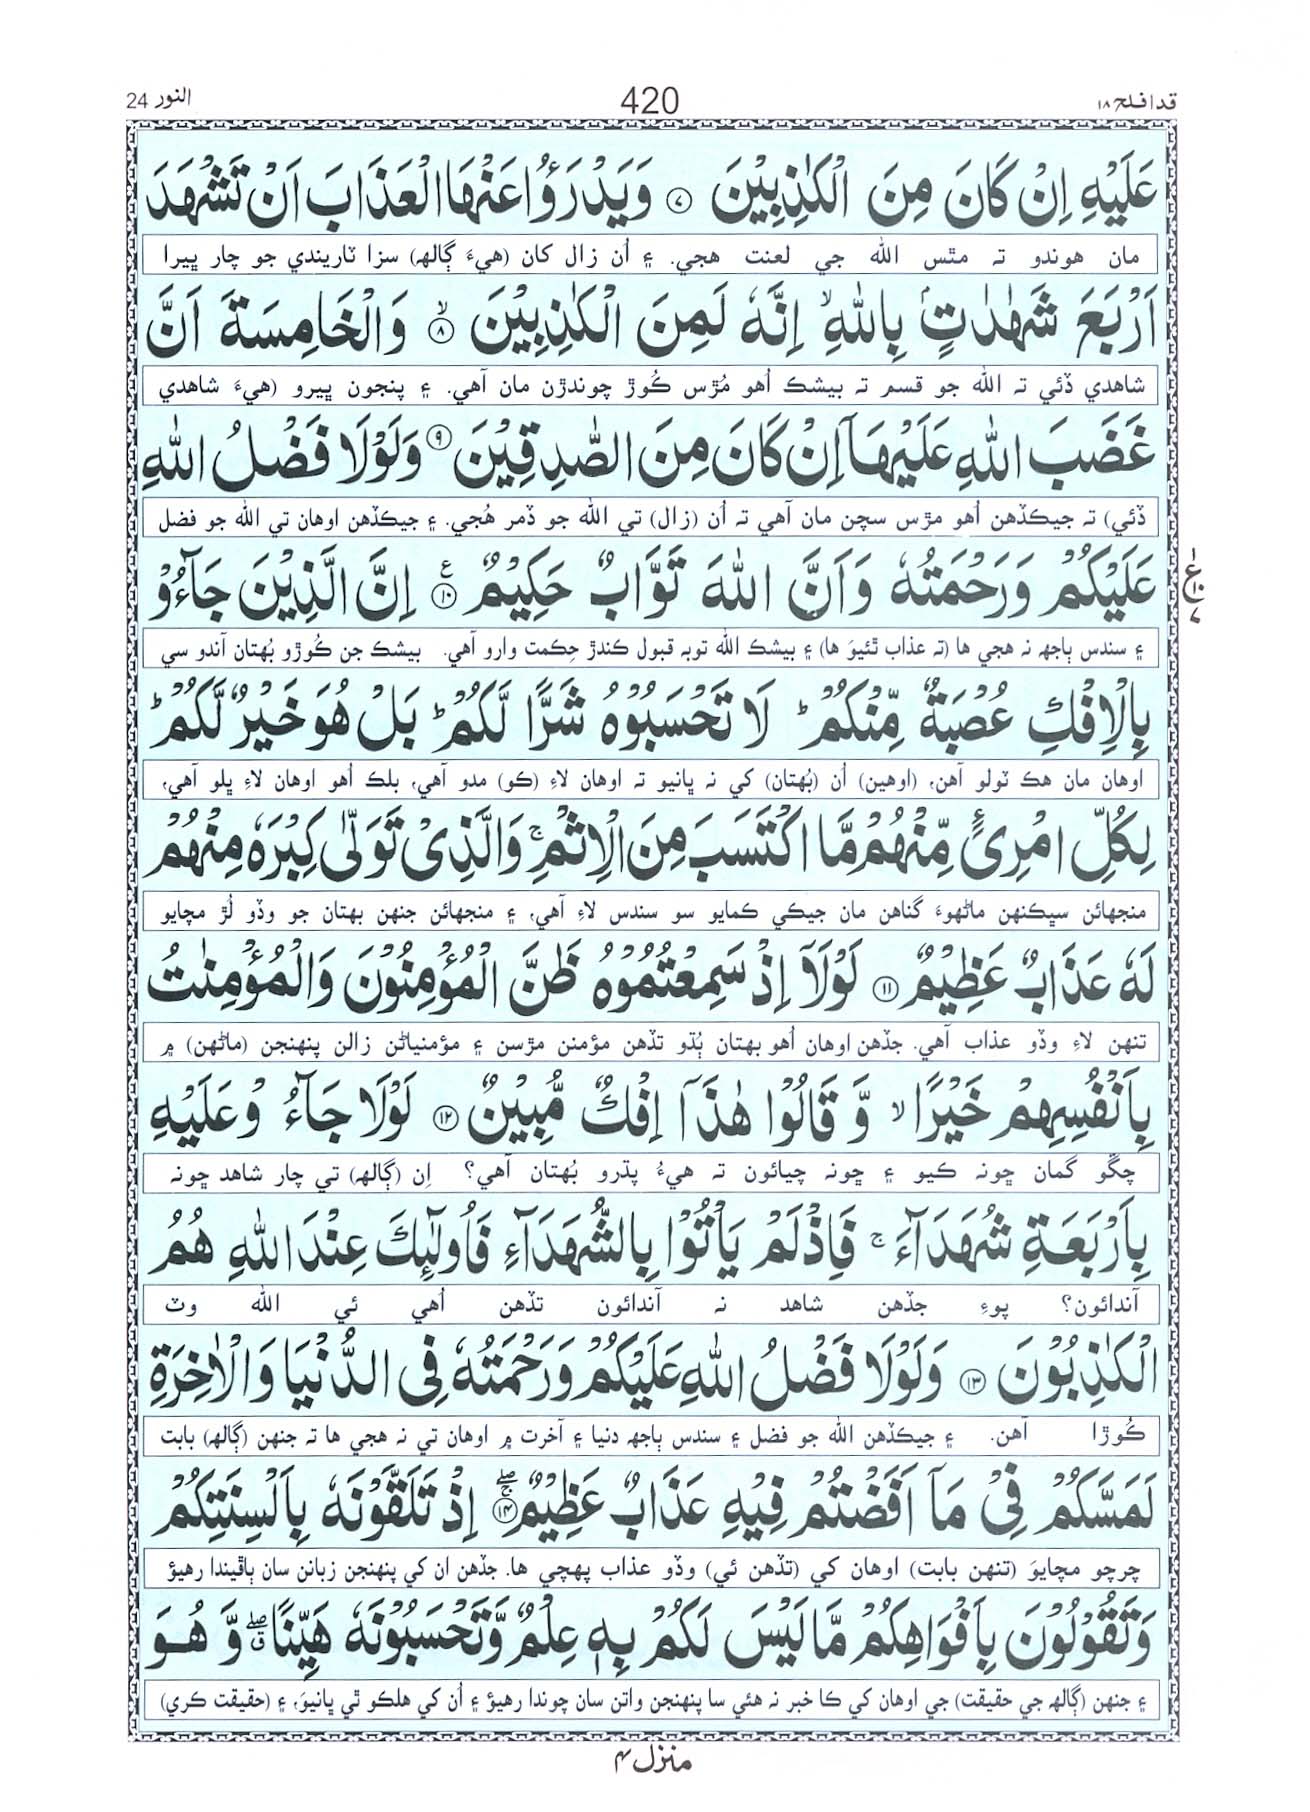 قد افلح ١٨ 420 النور 24
عَلَيْهِ اِنْ كَانَ مِنَ الْكٰذِبِيْنَ ۷ وَيَدْرَؤُا عَنْهَا الْعَذَابَ اَنْ تَشْهَدَ
مان هوندو ته مٿس الله جي لعنت هجي. ۽ اُن زال کان (هيءَ ڳالهه) سزا ٽاريندي جو چار ڀيرا
اَرْبَعَ شَهٰدٰتٍۭ بِاللّٰهِ ۙ اِنَّهٗ لَمِنَ الْكٰذِبِيْنَ ۙ ۸ وَالْخَامِسَةَ اَنَّ
شاهدي ڏئي ته الله جو قسم ته بيشڪ اُهو مُڙس ڪُوڙ چوندڙن مان آهي. ۽ پنجون ڀيرو (هيءَ شاهدي
غَضَبَ اللّٰهِ عَلَيْهَاۤ اِنْ كَانَ مِنَ الصّٰدِقِيْنَ ۹ وَلَوْلَا فَضْلُ اللّٰهِ
ڏئي) ته جيڪڏهن اُهو مڙس سچن مان آهي ته اُن (زال) تي الله جو ڏمر هُجي. ۽ جيڪڏهن اوهان تي الله جو فضل
عَلَيْكُمْ وَرَحْمَتُهٗ وَاَنَّ اللّٰهَ تَوَّابٌ حَكِيْمٌ ع ۱۰ اِنَّ الَّذِيْنَ جَآءُوْ
۽ سندس ٻاجهه نه هجي ها (ته عذاب ٿئيوَ ها) ۽ بيشڪ الله توبه قبول ڪندڙ حِڪمت وارو آهي. بيشڪ جن ڪُوڙو بُهتان آندو سي
بِالْاِفْكِ عُصْبَةٌ مِّنْكُمْ ؕ لَا تَحْسَبُوْهُ شَرًّا لَّكُمْ ؕ بَلْ هُوَ خَيْرٌ لَّكُمْ ؕ
اوهان مان هڪ ٽولو آهن، (اوهين) اُن (بُهتان) کي نه ڀانيو ته اوهان لاءِ (ڪو) مدو آهي، بلڪ اُهو اوهان لاءِ ڀلو آهي،
لِكُلِّ امْرِئٍ مِّنْهُمْ مَّا اكْتَسَبَ مِنَ الْاِثْمِ ۚ وَالَّذِيْ تَوَلّٰى كِبْرَهٗ مِنْهُمْ
منجهائن سڀڪنهن ماڻهوءَ گناهن مان جيڪي ڪمايو سو سندس لاءِ آهي، ۽ منجهائن جنهن بهتان جو وڏو لُڙ مچايو
لَهٗ عَذَابٌ عَظِيْمٌ ۱۱ لَوْلَاۤ اِذْ سَمِعْتُمُوْهُ ظَنَّ الْمُؤْمِنُوْنَ وَالْمُؤْمِنٰتُ
تنهن لاءِ وڏو عذاب آهي. جڏهن اوهان اُهو بهتان ٻُڌو تڏهن مؤمنن مڙسن ۽ مؤمنياڻن زالن پنهنجن (ماڻهن) ۾
بِاَنْفُسِهِمْ خَيْرًا ۙ وَّ قَالُوْا هٰذَاۤ اِفْكٌ مُّبِيْنٌ ۱۲ لَوْلَا جَآءُوْ عَلَيْهِ
چڱو گمان ڇونه ڪيو ۽ ڇونه چيائون ته هيءُ پڌرو بُهتان آهي؟ اِن (ڳالهه) تي چار شاهد ڇونه
بِاَرْبَعَةِ شُهَدَآءَ ۚ فَاِذْ لَمْ يَاْتُوْا بِالشُّهَدَآءِ فَاُولٰٓئِكَ عِنْدَ اللّٰهِ هُمُ
آندائون؟ پوءِ جڏهن شاهد نه آندائون تڏهن اُهي ئي الله وٽ
الْكٰذِبُوْنَ ۱۳ وَلَوْلَا فَضْلُ اللّٰهِ عَلَيْكُمْ وَرَحْمَتُهٗ فِي الدُّنْيَا وَالْاٰخِرَةِ
ڪُوڙا آهن. ۽ جيڪڏهن الله جو فضل ۽ سندس ٻاجهه دنيا ۽ آخرت ۾ اوهان تي نه هجي ها ته جنهن (ڳالهه) بابت
لَمَسَّكُمْ فِيْ مَاۤ اَفَضْتُمْ فِيْهِ عَذَابٌ عَظِيْمٌ ۖۚ ۱۴ اِذْ تَلَقَّوْنَهٗ بِاَلْسِنَتِكُمْ
چرچو مچايوَ (تنهن بابت) اوهان کي (تڏهن ئي) وڏو عذاب پهچي ها. جڏهن ان کي پنهنجن زبانن سان ٻاڦيندا رهيؤ
وَتَقُوْلُوْنَ بِاَفْوَاهِكُمْ مَّا لَيْسَ لَكُمْ بِهٖ عِلْمٌ وَّتَحْسَبُوْنَهٗ هَيِّنًا ۖۗ وَّ هُوَ
۽ جنهن (ڳالهه جي حقيقت) جي اوهان کي ڪا خبر نه هئي سا پنهنجن واتن سان چوندا رهيؤ ۽ اُن کي هلڪو ٿي ڀانيوَ، ۽ (حقيقت ڪري)
منزل ۴